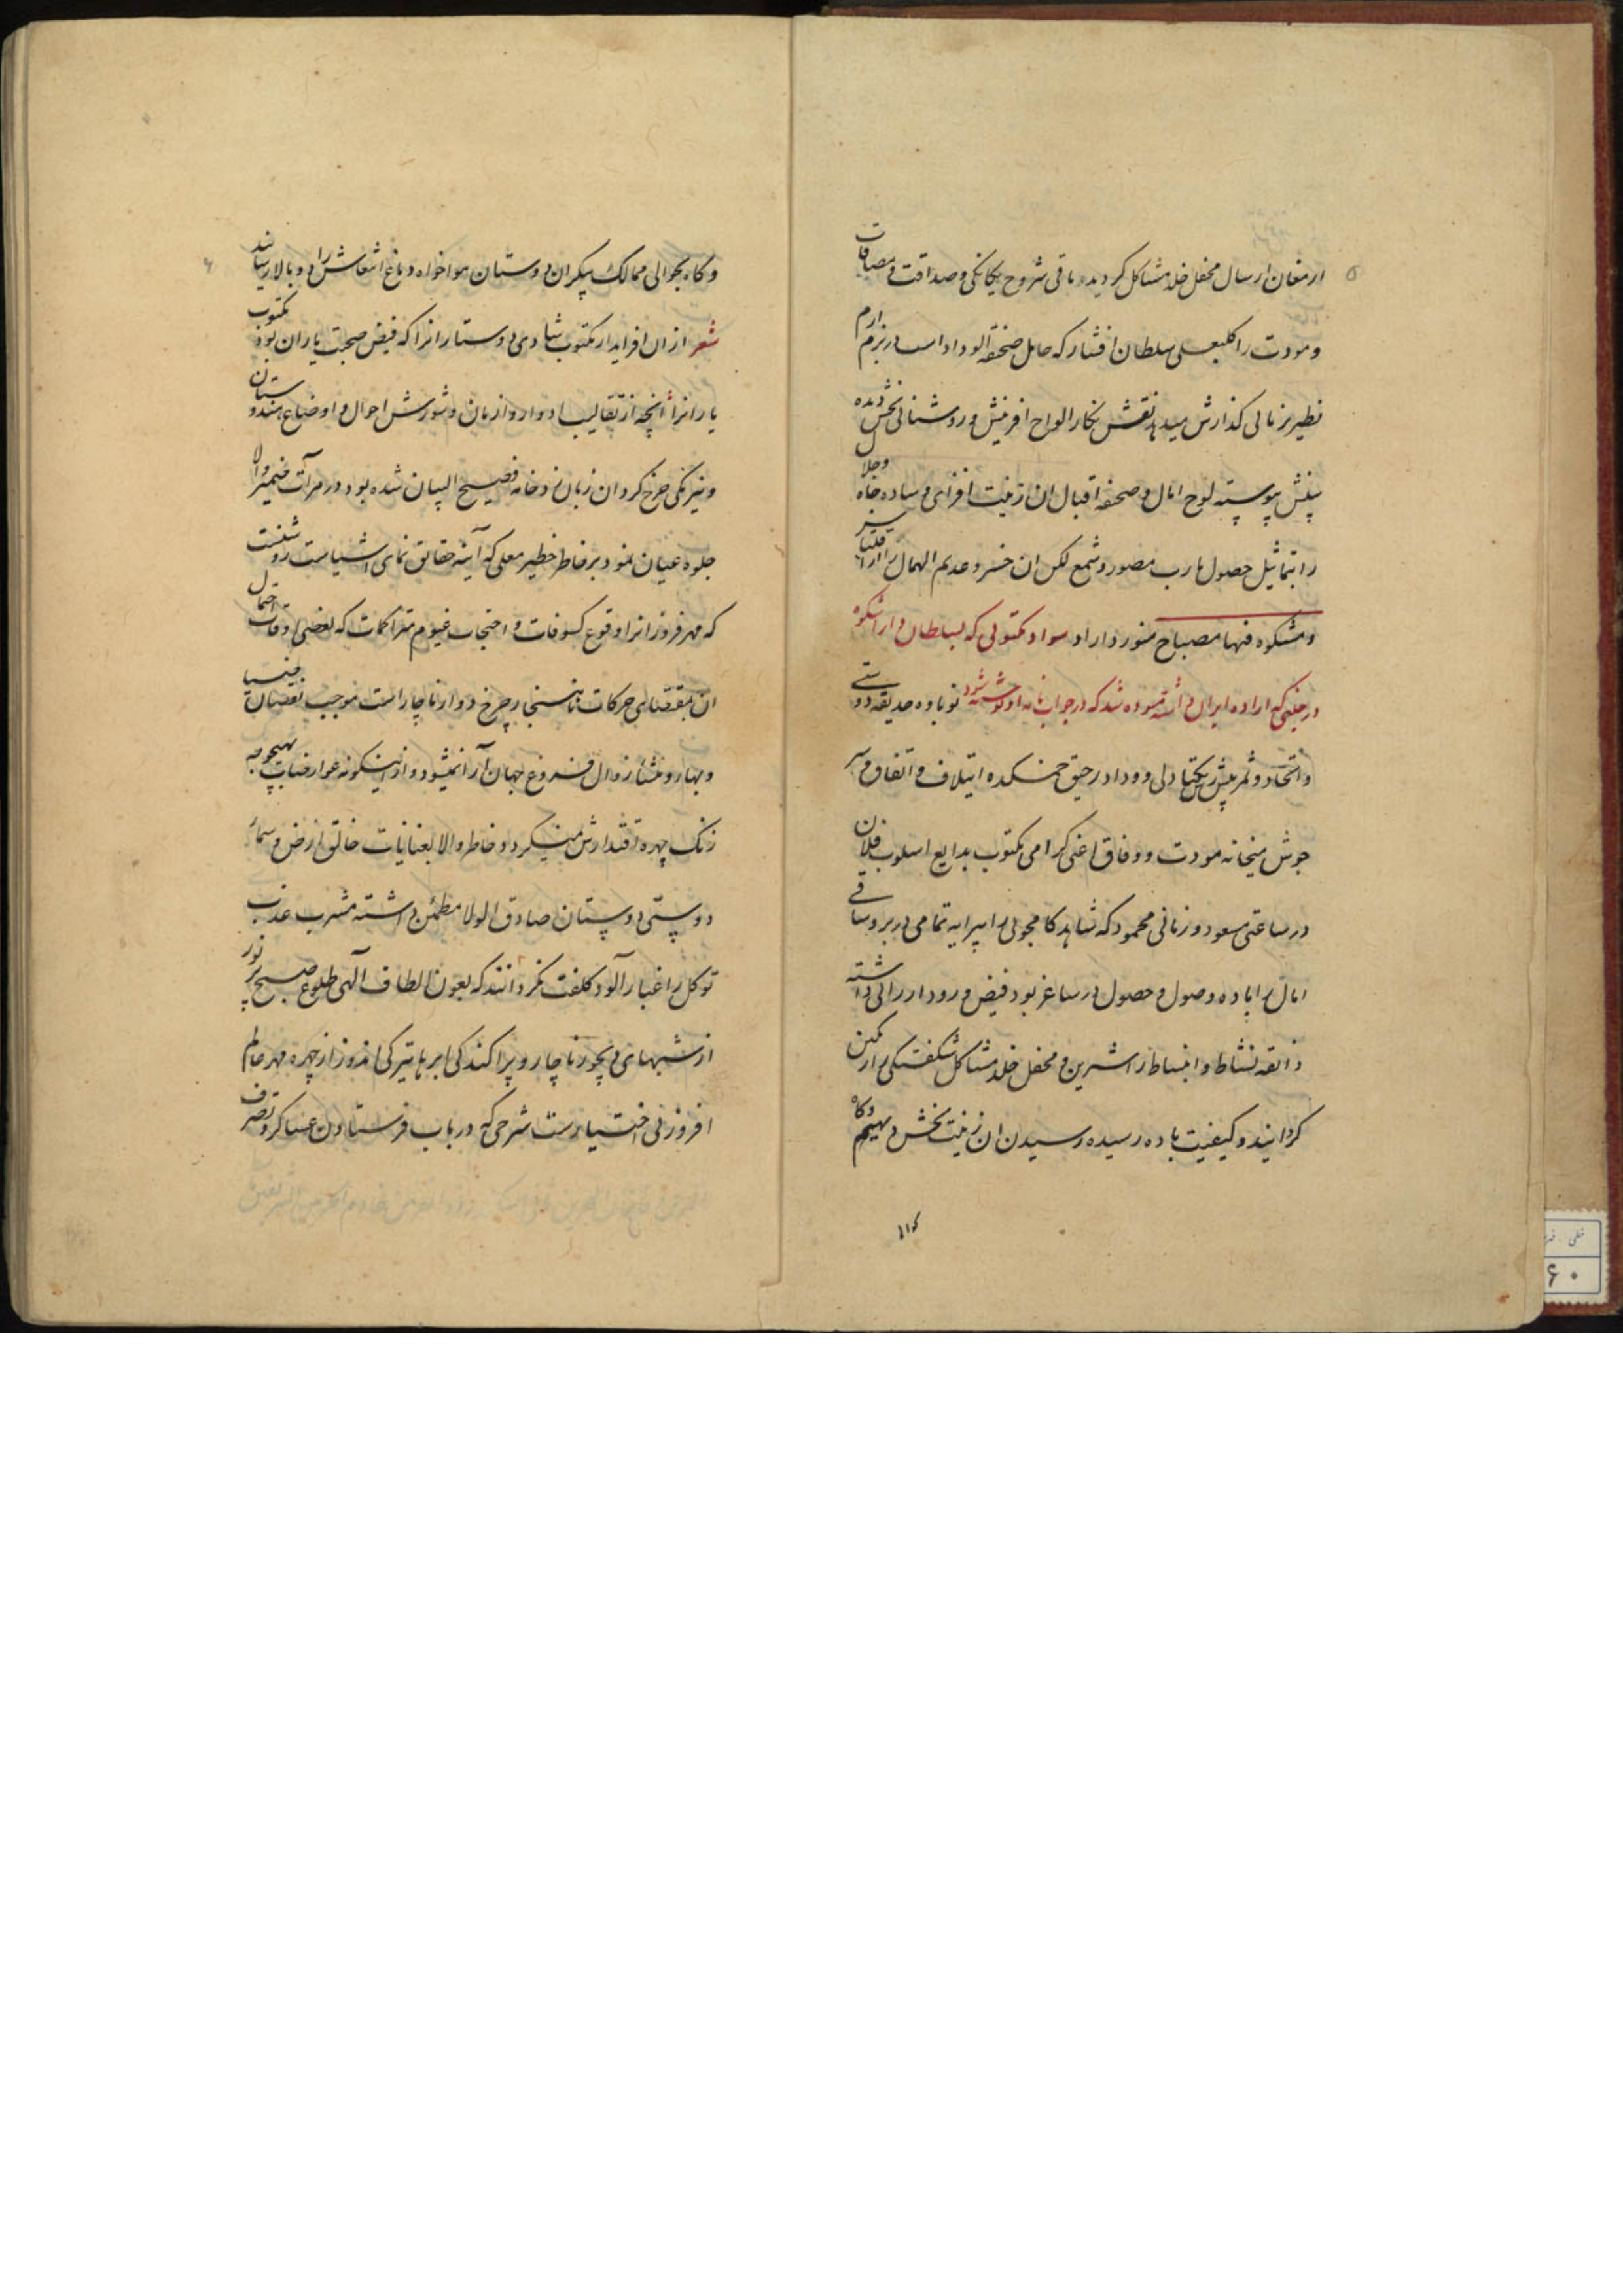 ۵
ارمغان ارسال محفل خلد مشاکل گردیده باقی شروح یکانکی و صداقت و مصافات
و مودت را کلبعلی سلطان افشار که حامل صحفة الوداد است در بزم ارم
نظیر بزبانی گذارش میدهد نقش نگار الواح افرینش و روشنائی بخش دیده
بینش پیوسته لوح امال و صحفه اقبال ان زینت افزای وساده جاه و جلال
را بتماثیل حصول مارب مصور و شمع لکن ان خسرو عدیم الهمال را از اقتباس
و مشکوه فیها مصباح منور داراد سواد مکتوبی که بسلطان داراشکوه
در حینی که اراده ایران داشته مسوده شد که در جواب نامه او نوشته شود نوباوه حدیقه دوستی
و اتحاد و ثمر پیش رس یکتادلی و وداد رحیق خمکده ایتلاف و اتفاق و سر
جوش میخانه مودت و وفاق اعنی گرامی مکتوب بدایع اسلوب فلان
در ساعتی مسعود و زمانی محمود که شاهد کامجوئی را پیرایه تمامی در بر و ساقی
امال را باده وصول و حصول در ساغر بود فیض ورود ارزانی داشته
ذائقه نشاط و انبساط را شیرین و محفل خلد مشاکل شکفتگی را رنگین
گردانید و کیفیت باده رسیده رسیدن ان زینت بخش دیهیم و گاه
۶
و گاه بحوالی ممالک بیکران دوستان هواخواه دماغ انتعاش را دوبالا رسانید
شعر از ان افزاید از مکتوب شادی دوستارانرا که فیض صحبت یاران بود مکتوب
یارانرا انچه از تقالیب ادوار و ازمان و شورش احوال و اوضاع هندوستان
و نیرنگی چرخ گردان زبان زد خامه فصیح البیان شده بود در مرآت ضمیر والا
جلوه عیان نمود بر خاطر خطیر معلی که آینه حقایق نمای اشیاست روشنست
که مهر فروزانرا وقوع کسوفات و احتجاب غیوم متراکمات که بعضی اوقات احتمال
ان بمقتضای حرکات ناسنجار چرخ دوار ناچار است موجب نقصان ضیا
و بها و منشا زوال فروغ جهان آرا نمیشود و ازینگونه عوارضات بهیچوجه
زنک چهره اقتدارش نمیگردد خاطر والا بعنایات خالق ارض و سما و
دوستی دوستان صادق الولا مطمئن داشته مشرب عذب
توکل را غبار آلود کلفت نگردانند که بعون الطاف الهی طلوع صبح پر نور
از شبهای دیجور ناچار و پراکندگی ابرهای تیرگی اندوز از چهره مهر عالم
افروز بی اختیارست شرحی که در باب فرستادن عساکر و تصرف